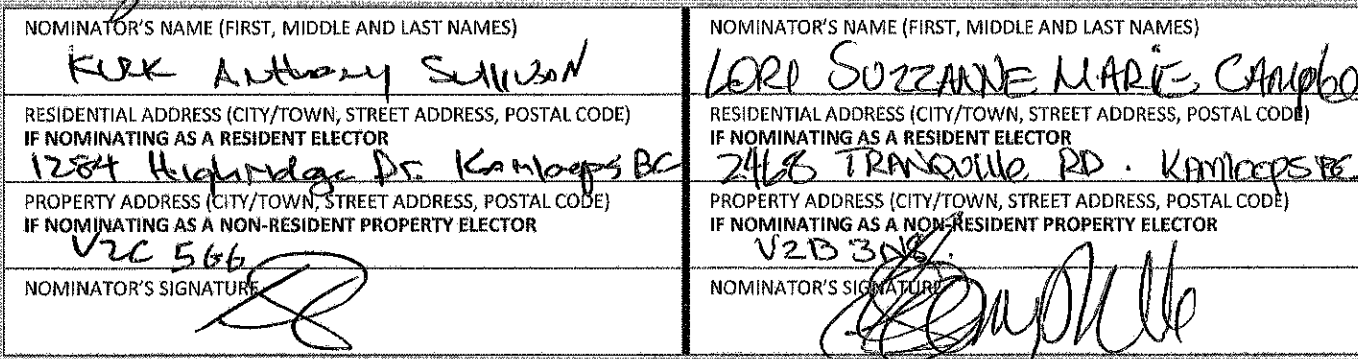 NOMINATOR'S NAME (FIRST, MIDDLE AND LAST NAMES)
KIRK Anthony Sullivan
RESIDENTIAL ADDRESS (CITY/TOWN, STREET ADDRESS, POSTAL CODE)
IF NOMINATING AS A RESIDENT ELECTOR
1284 Highridge Dr. Kamloops BC
PROPERTY ADDRESS (CITY/TOWN, STREET ADDRESS, POSTAL CODE)
IF NOMINATING AS A NON-RESIDENT PROPERTY ELECTOR
V2C 5G6
NOMINATOR'S SIGNATURE
NOMINATOR'S NAME (FIRST, MIDDLE AND LAST NAMES)
LORI SUZZANNE MARIE Campbe
RESIDENTIAL ADDRESS (CITY/TOWN, STREET ADDRESS, POSTAL CODE)
IF NOMINATING AS A RESIDENT ELECTOR
2468 TRANQUille RD. Kamloops BC
PROPERTY ADDRESS (CITY/TOWN, STREET ADDRESS, POSTAL CODE)
IF NOMINATING AS A NON-RESIDENT PROPERTY ELECTOR
V2B 3N8.
NOMINATOR'S SIGNATURE